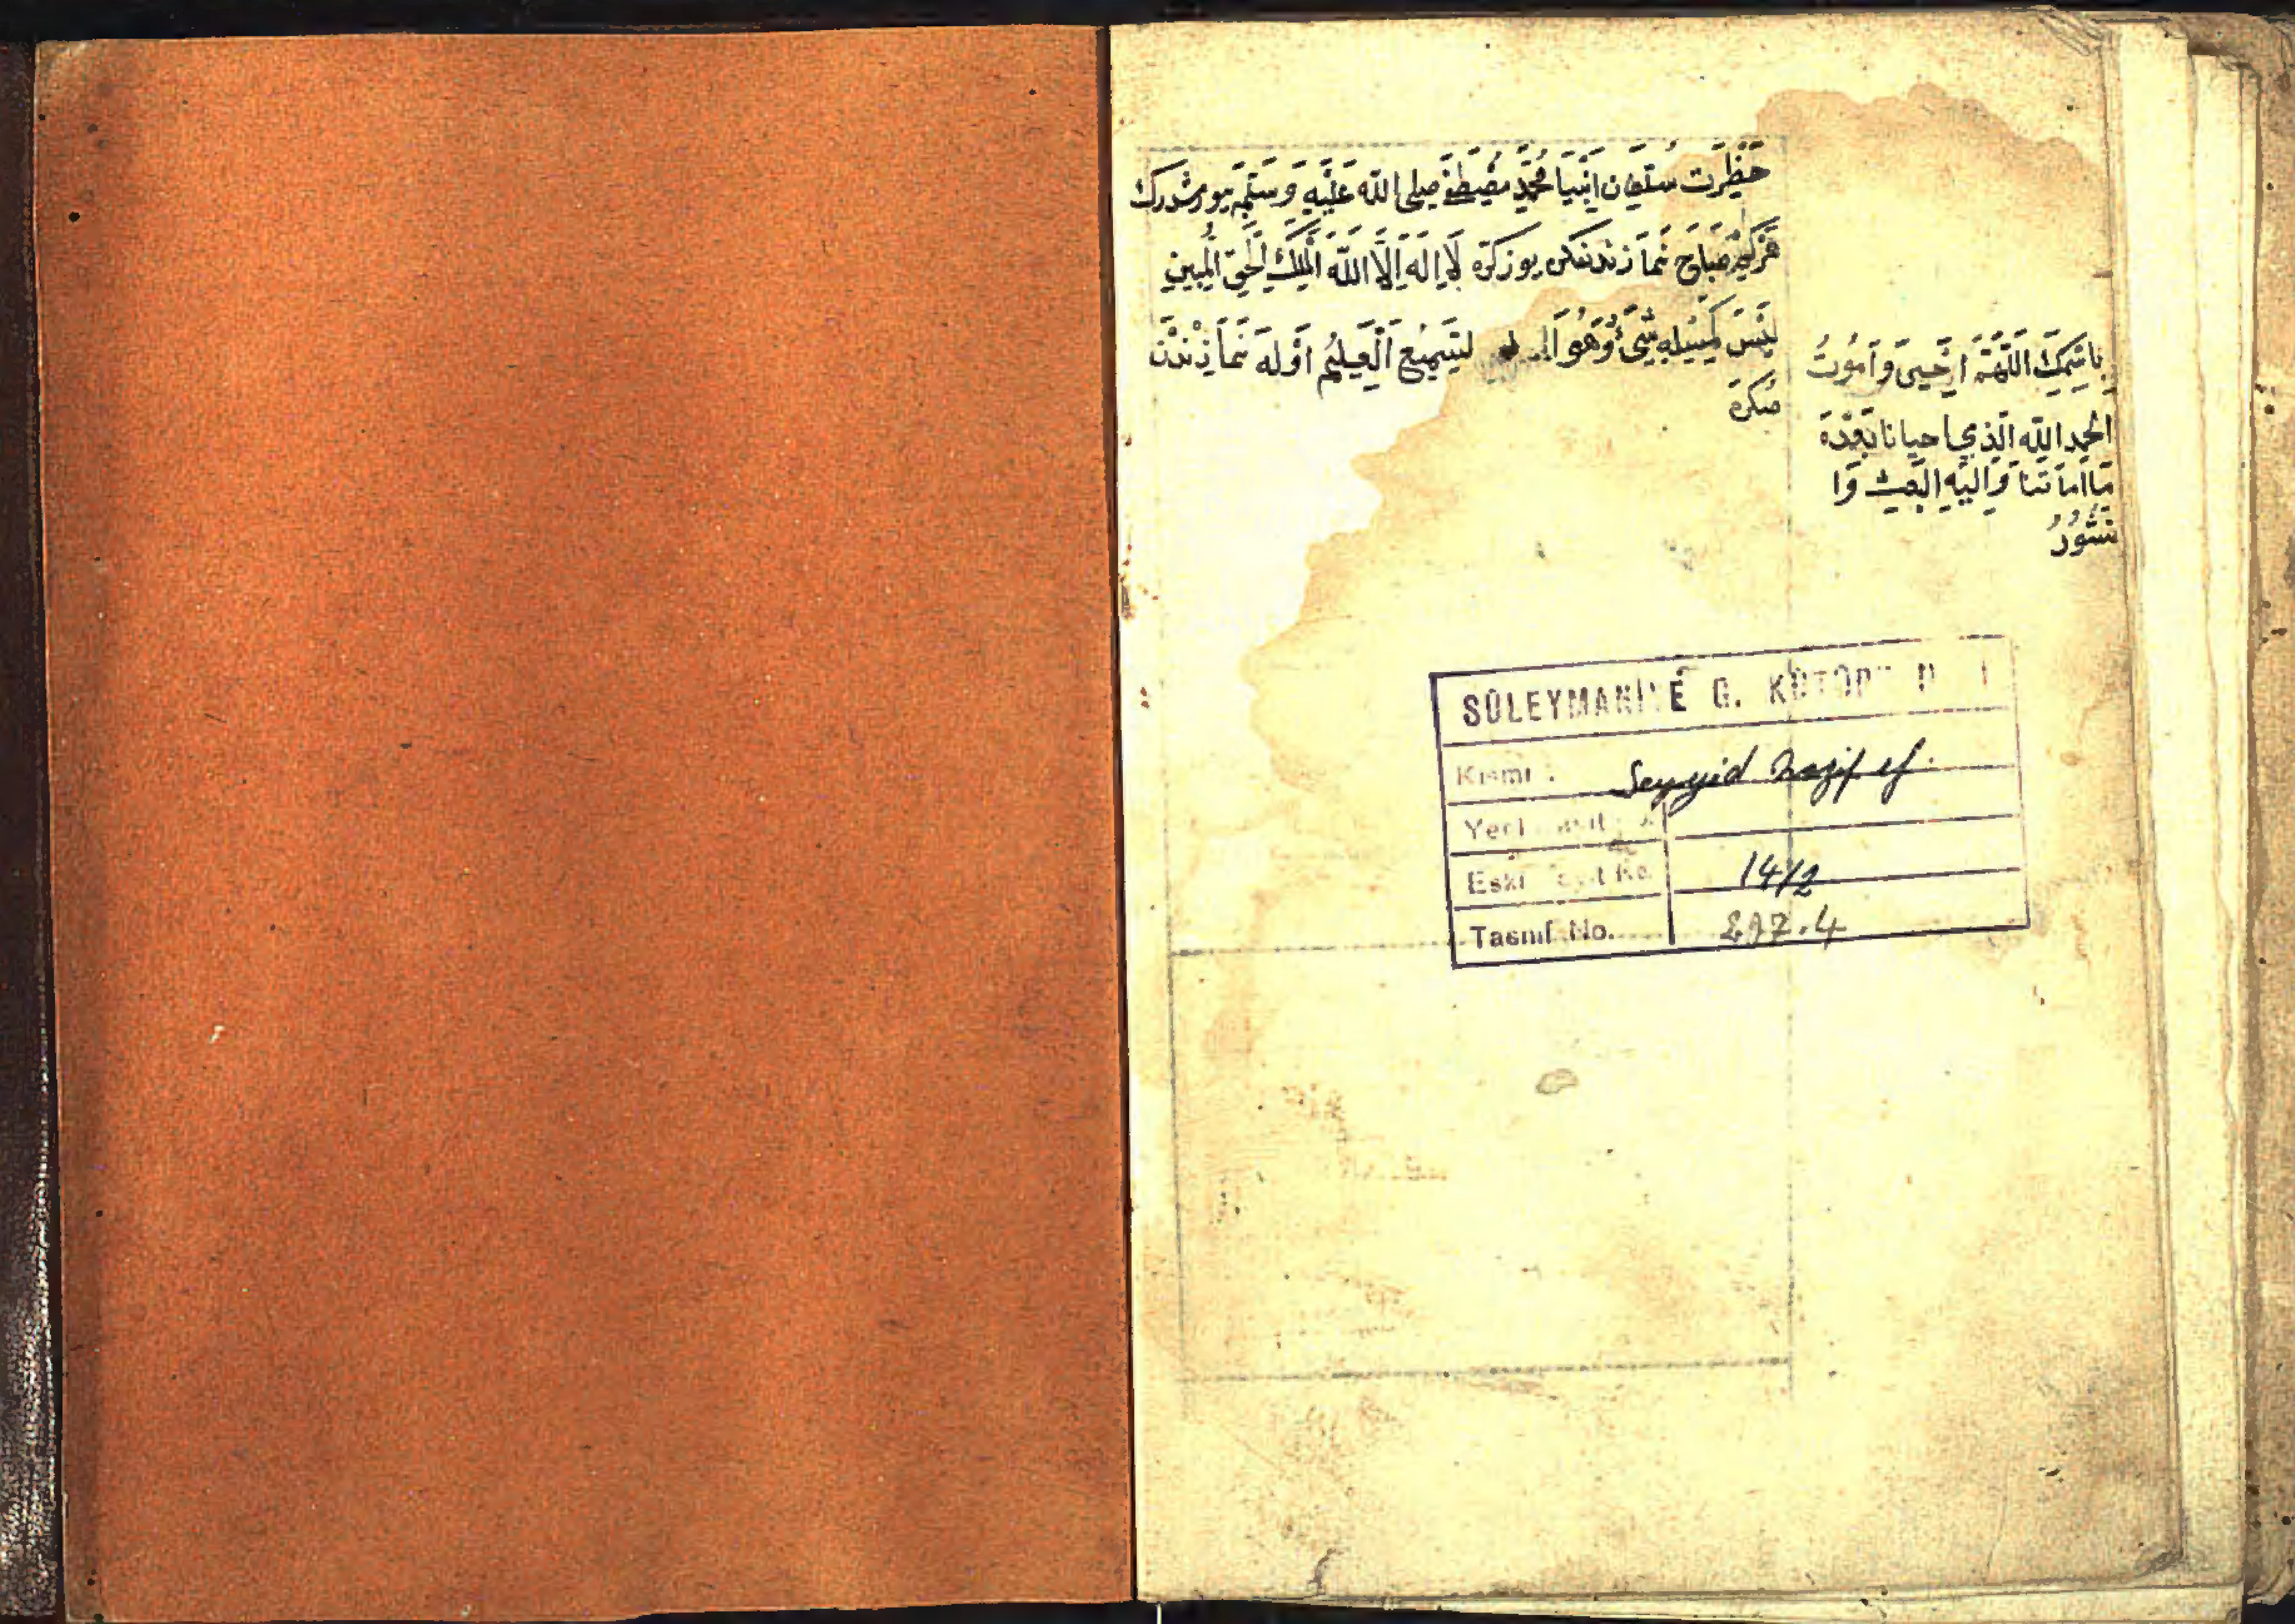 حَظْرَت سُلْطَان اَنْبِيَا مُحَمَّدِ مُصْطَفَى صلى اللّٰه عَلَيْهِ وَسَلَّمَ بيورشدرك
هَرْكِيمْ صَبَاح نَمَازندنصكره يوزكَرَه لَا اِلَهَ اِلَّا اللّٰه اَلْمَلِكُ الْحَقّ الْمُبِين
لَيْسَ كَمِثْلِهِ شَىْءٌ وَهُوَ السَّمِيعُ الْعَلِيمُ اوَّلَه نَمَازِنْدَنْ
صكره
بِاسْمِكَ اللّٰهُمَّ اَحْيىَ وَاَمُوتُ
الحمد اللّٰه الَّذِي احيانا بَعْدَهَ
مَا اَمَاتَنَا وَاِلَيْهِ الْبَعْثُ وَا
نشُورُ
SÜLEYMANİYE G. KÜTÜP
Kısmı : Seyyid Nazif ef.
Yeni
Eski Kayıt No. 14/2
Tasnif No. 297.4